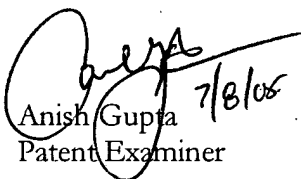 7/8/05
Anish Gupta
Patent Examiner